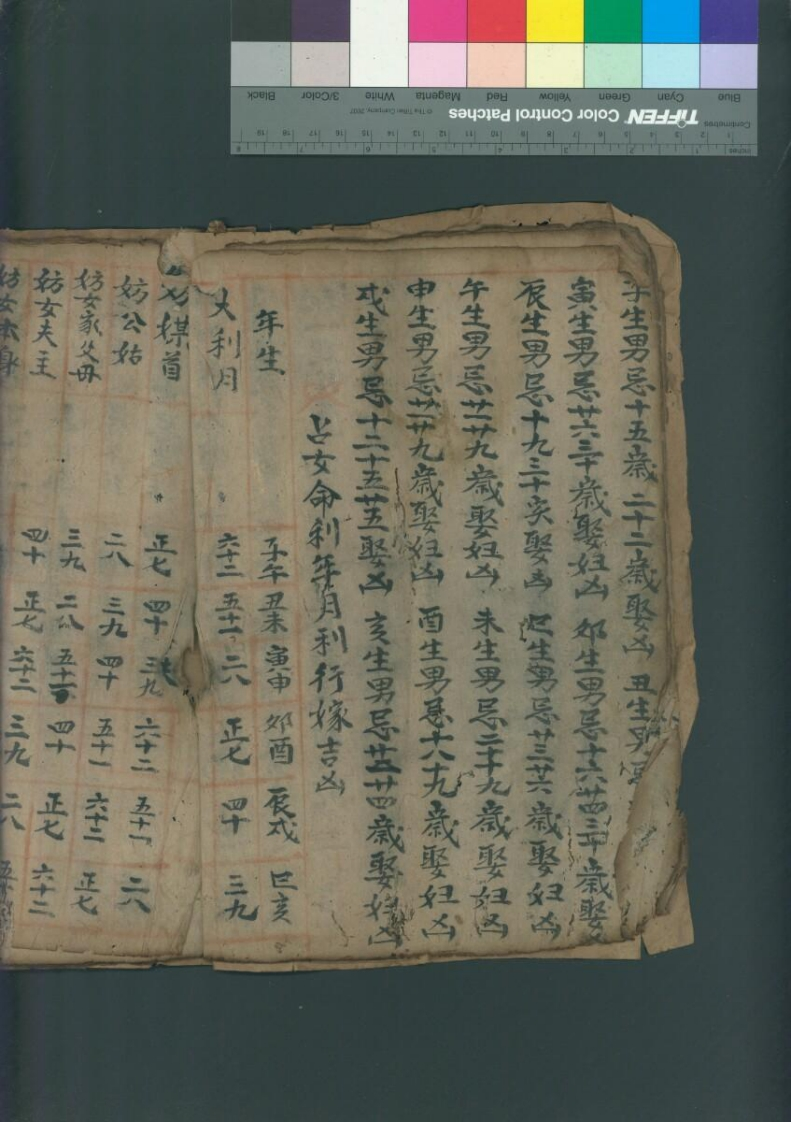 子生男忌十五歲 二十二歲娶凶 丑生男忌
寅生男忌廿六三十歲娶妇凶 卯生男忌十六廿四三十歲娶
辰生男忌十九三十歲娶凶 巳生男忌廿三廿六歲娶妇凶
午生男忌廿一廿九歲娶妇凶 未生男忌二十九歲娶妇凶
申生男忌廿一廿九歲娶妇凶 酉生男忌十八十九歲娶妇凶
戌生男忌十二十五廿五娶凶 亥生男忌廿二廿四歲娶妇凶
占女命利年月利行嫁吉凶
年生 子午 丑未 寅申 卯酉 辰戌 巳亥
大利月 六十二 五十一 二八 正七 四十 三九
妨媒首 正七 四十 三九 六十二 五十一 二八
妨公姑 二八 三九 四十 五十一 六十二 正七
妨女家父母 三九 二八 五十一 四十 正七 六十二
妨女夫主 四十 正七 六十二 三九 二八
妨女本身
Blue Cyan Green Yellow Red Magenta White 3/Color Black
TIFFEN Color Control Patches © The Tiffen Company, 2007
Centimetres 1 2 3 4 5 6 7 8 9 10 11 12 13 14 15 16 17 18 19
Inches 1 2 3 4 5 6 7 8